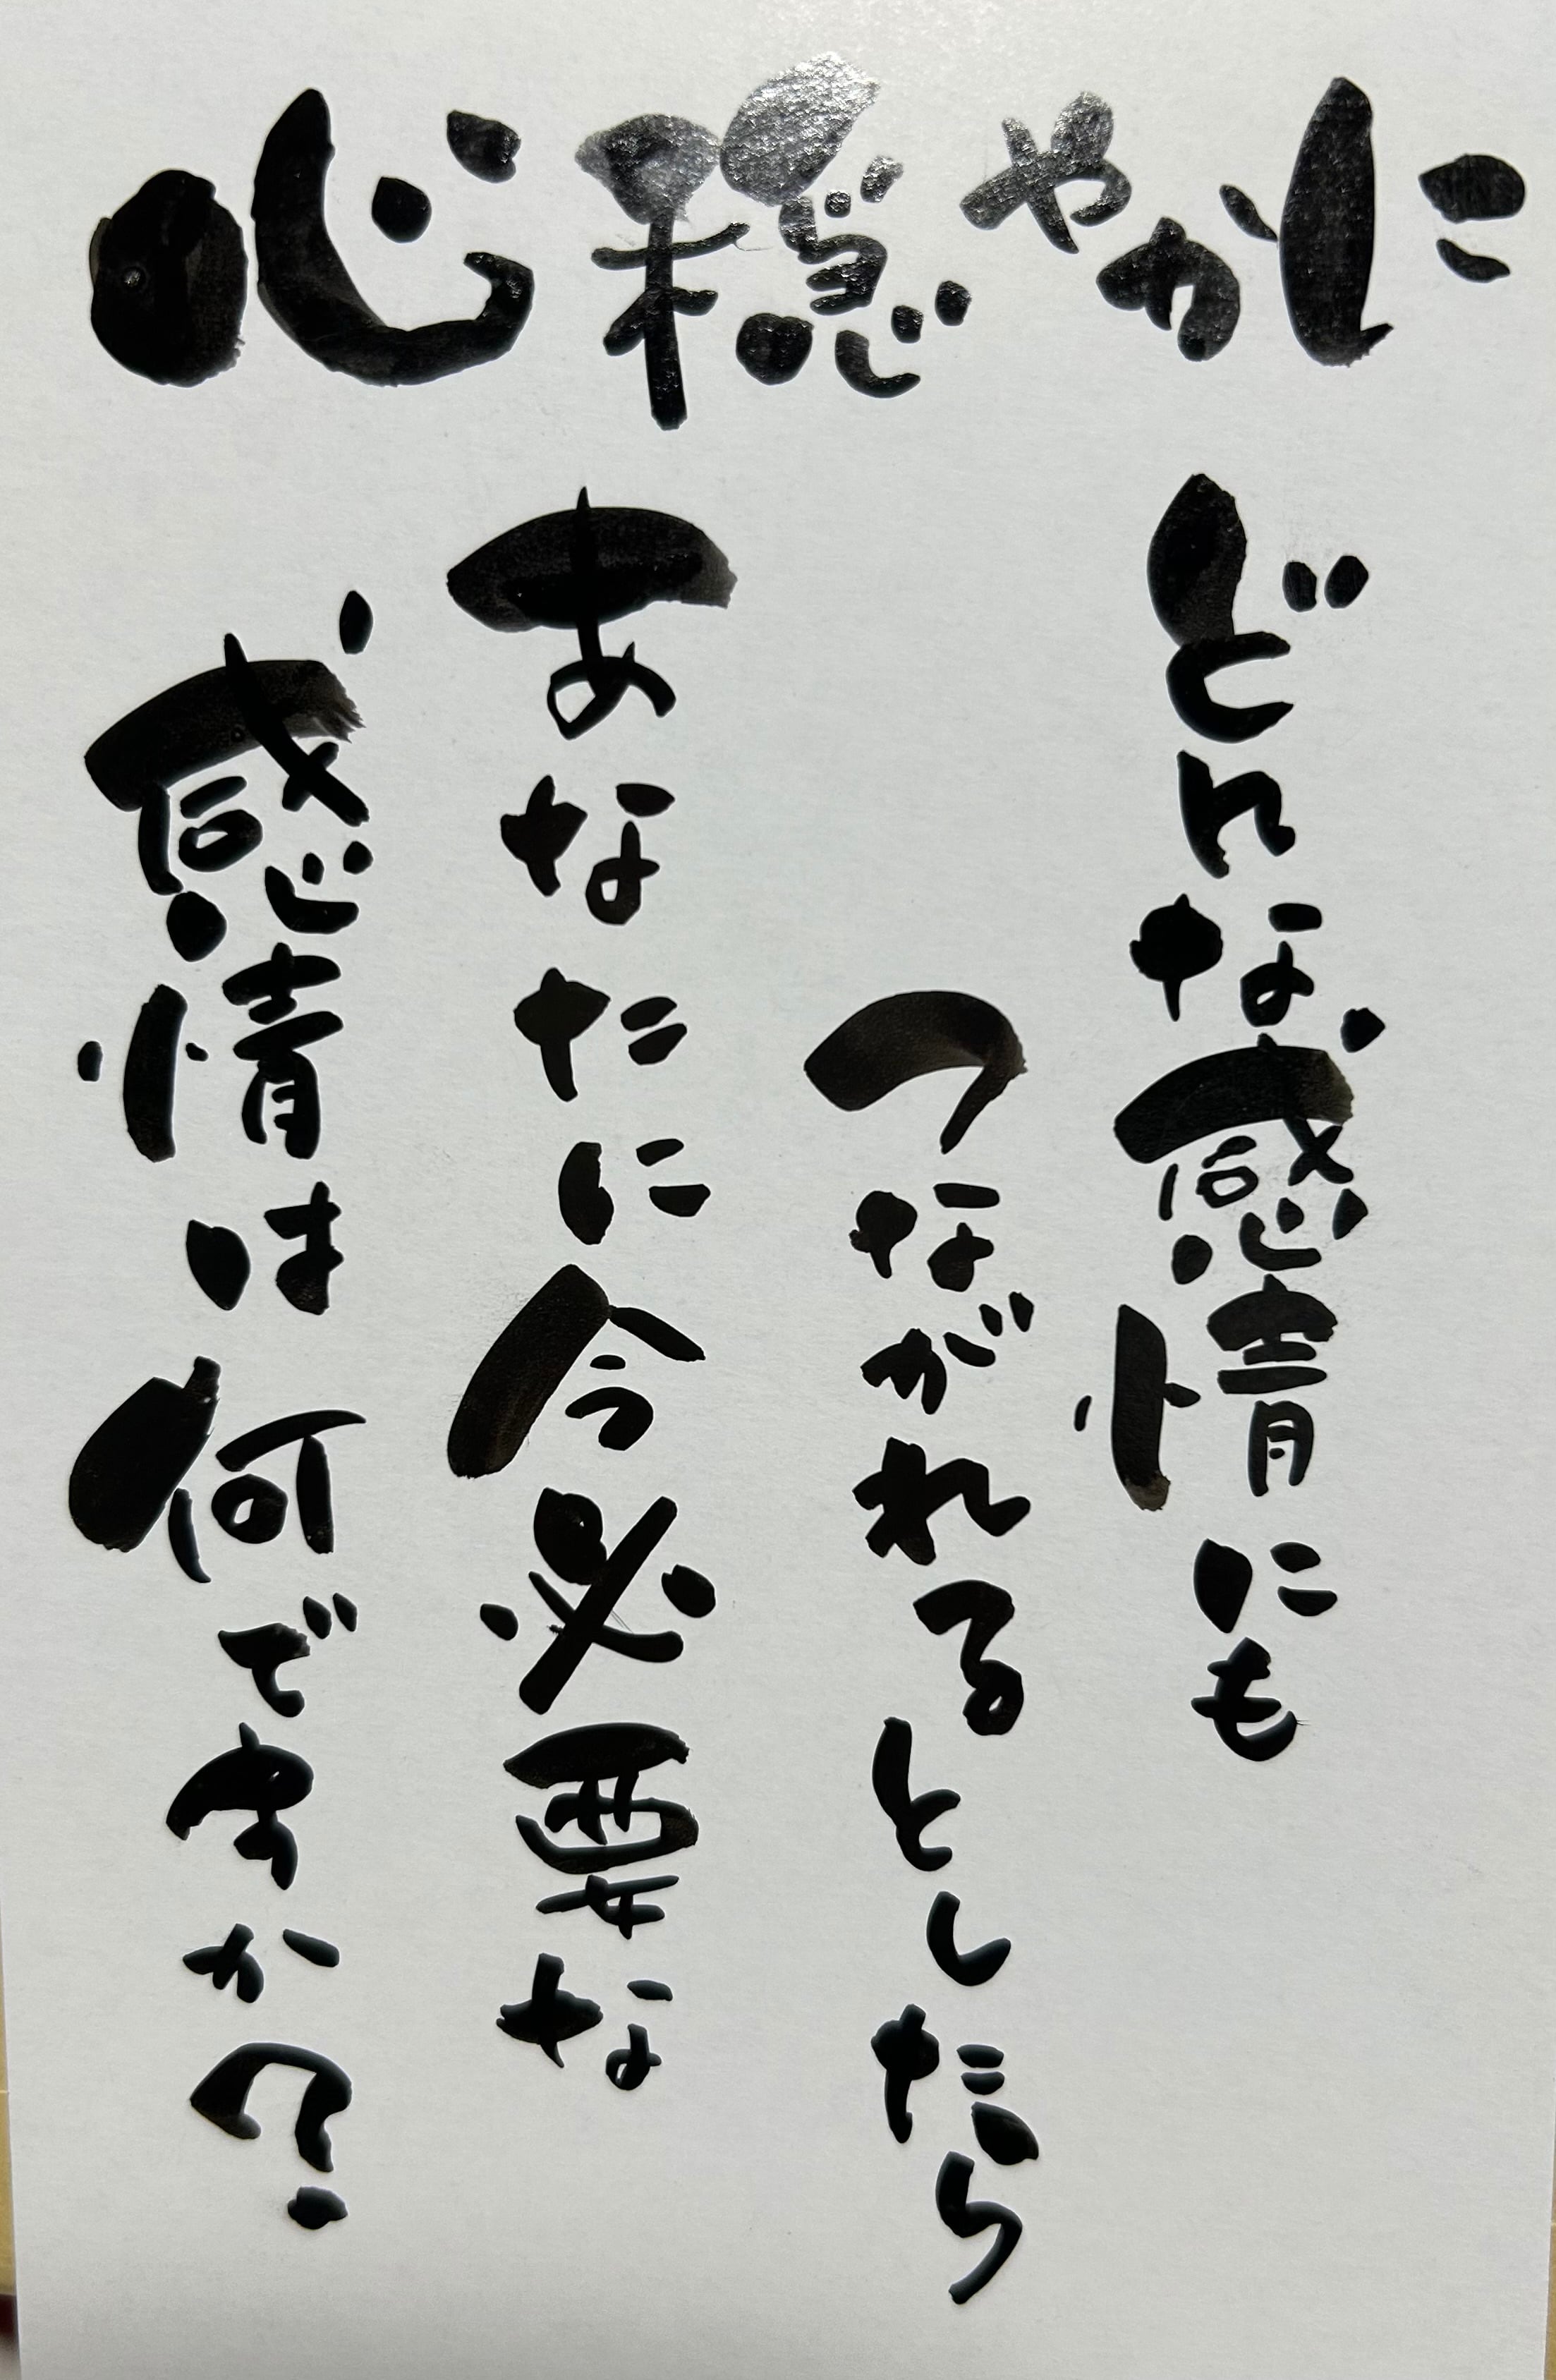 心穏やかに
どんな感情にも
つながれるとしたら
あなたに今必要な
感情は何ですか?